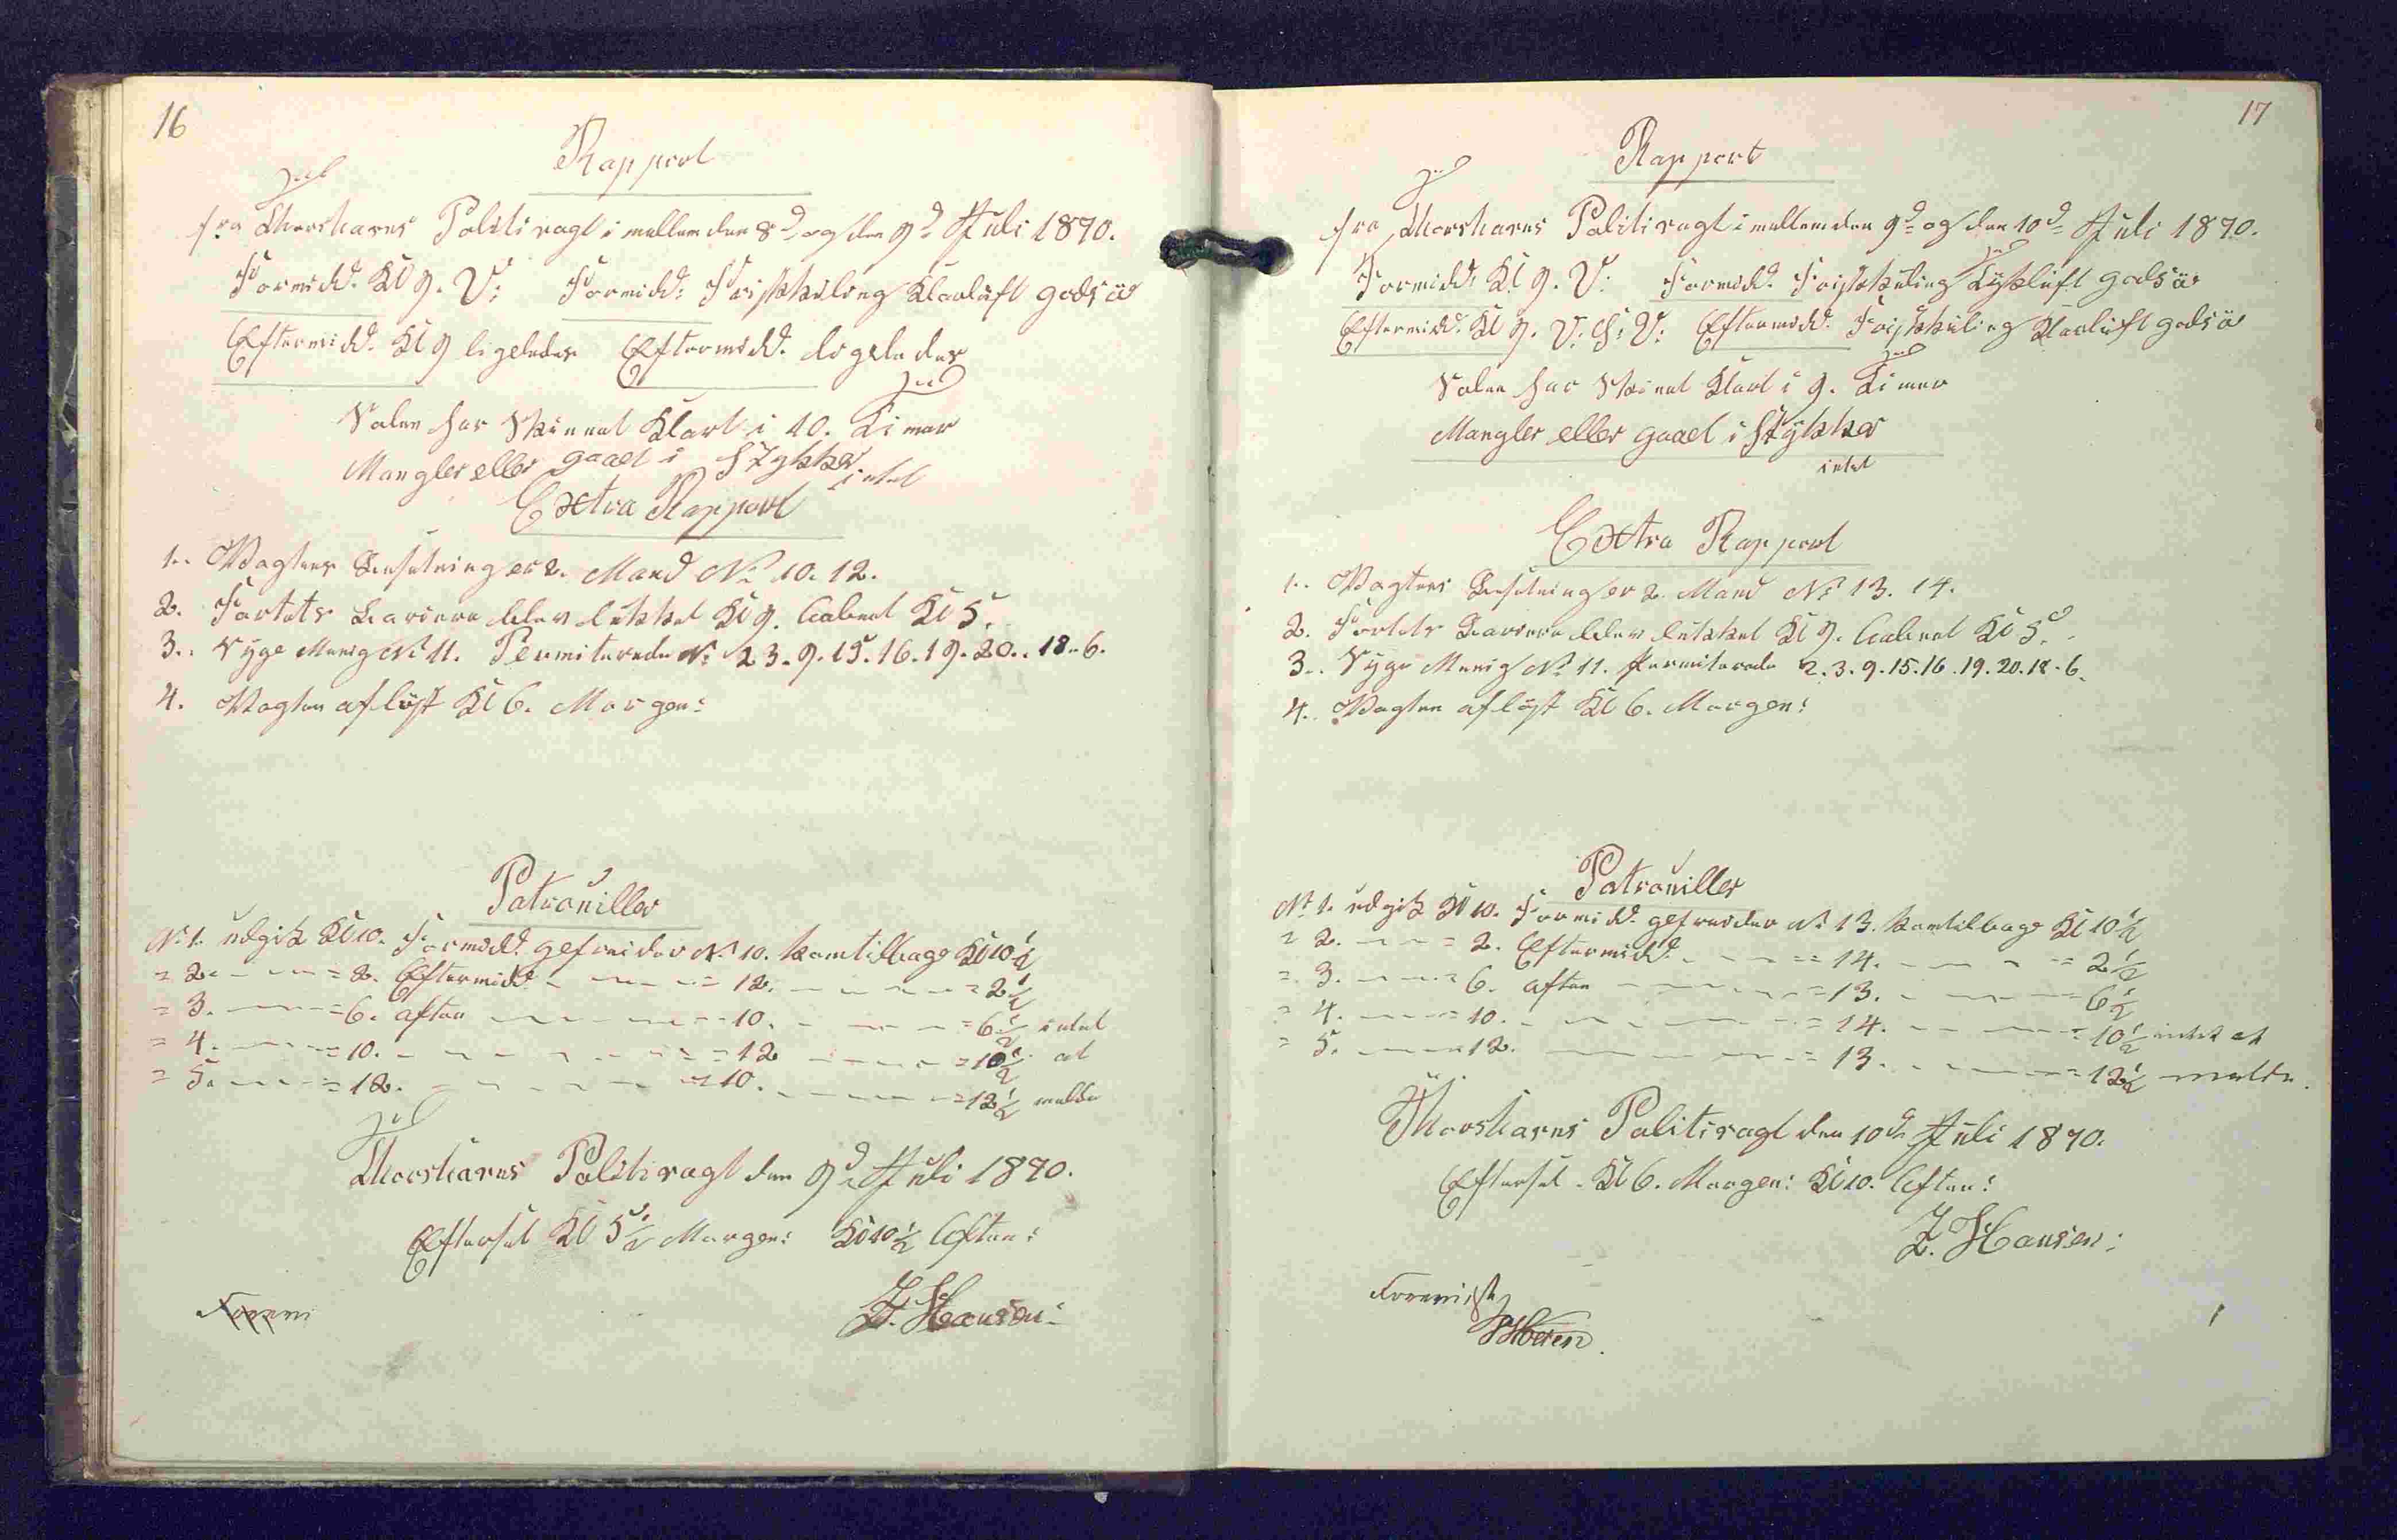 16
Rapport
fra Thorshavns Politivagt i mellem den 8d og den 9d Juli 1870.
Formidd. Kl 9. V: Formidd: Friskkuling Klarluft godsöe
Eftermidd. Kl 9 ligeledes Eftermidd. ligeledes
Solen har Skinnet Klart i 10. Timer
Mangler eller gaaet i Stykker intet
Extra Rapport
1. Vagtens Besetning er 2. Mand No 10. 12.
2. Fortets Bariere blev lukket Kl 9. aabnet Kl 5.
3. Syge Menig No 11. Permiterede No 2 3. 9. 15. 16. 19. 20. 18. 6.
4. Vagten aflöst Kl 6. Morgen:
Patrouiller
No 1. udgik Kl 10. Formidd. gefreider No 10. kom tilbage Kl 10½
= 2. — — = 2. Eftermidd. — — = 12. — — = 2½
= 3. — — = 6. aften — — = 10. — — = 6½ intet
= 4. — — = 10. — — = 12 — — = 10½ at
= 5. — — = 12. — — = 10. — — = 12½ melde
Thorshavns Politivagt den 9d Juli 1870.
Efterset Kl 5½ Morgen: Kl 10½ Aften:
Z. Hansen:
17
Rapport
fra Thorshavns Politivagt i mellem den 9d og den 10d Juli 1870.
Formidd. Kl 9. V: Formidd. Friskkuling Tykluft godsöe
Eftermidd. Kl 9. V. S: V: Eftermidd. Friskkuling Klarluft godsöe
Solen har Skinnet Klart i 9. Timer
Mangler eller gaaet i Stykker
intet
Extra Rapport
1. Vagtens Besetning er 2. Mand No 13. 14.
2. Fortets Bariere blev lukket Kl 9. Aabnet Kl 5.
3. Syge Menig No 11. Permiterede 2. 3. 9. 15. 16. 19. 20. 18. 6.
4. Vagten aflöst Kl 6. Morgen:
Patrouiller
No 1. udgik Kl 10. Formidd. gefreider No 13. kom tilbage Kl 10½
= 2. — — = 2. Eftermidd. — — = 14. — — = 2½
= 3. — — = 6. aften — — = 13. — — = 6½
= 4. — — = 10. — — = 14. — — = 10½ intet at
= 5. — — = 12. — — = 13. — — = 12½ melde.
Thorshavns Politivagt den 10d Juli 1870.
Eftersel. Kl 6. Morgen: Kl 10. Aften:
Z. Hansen: